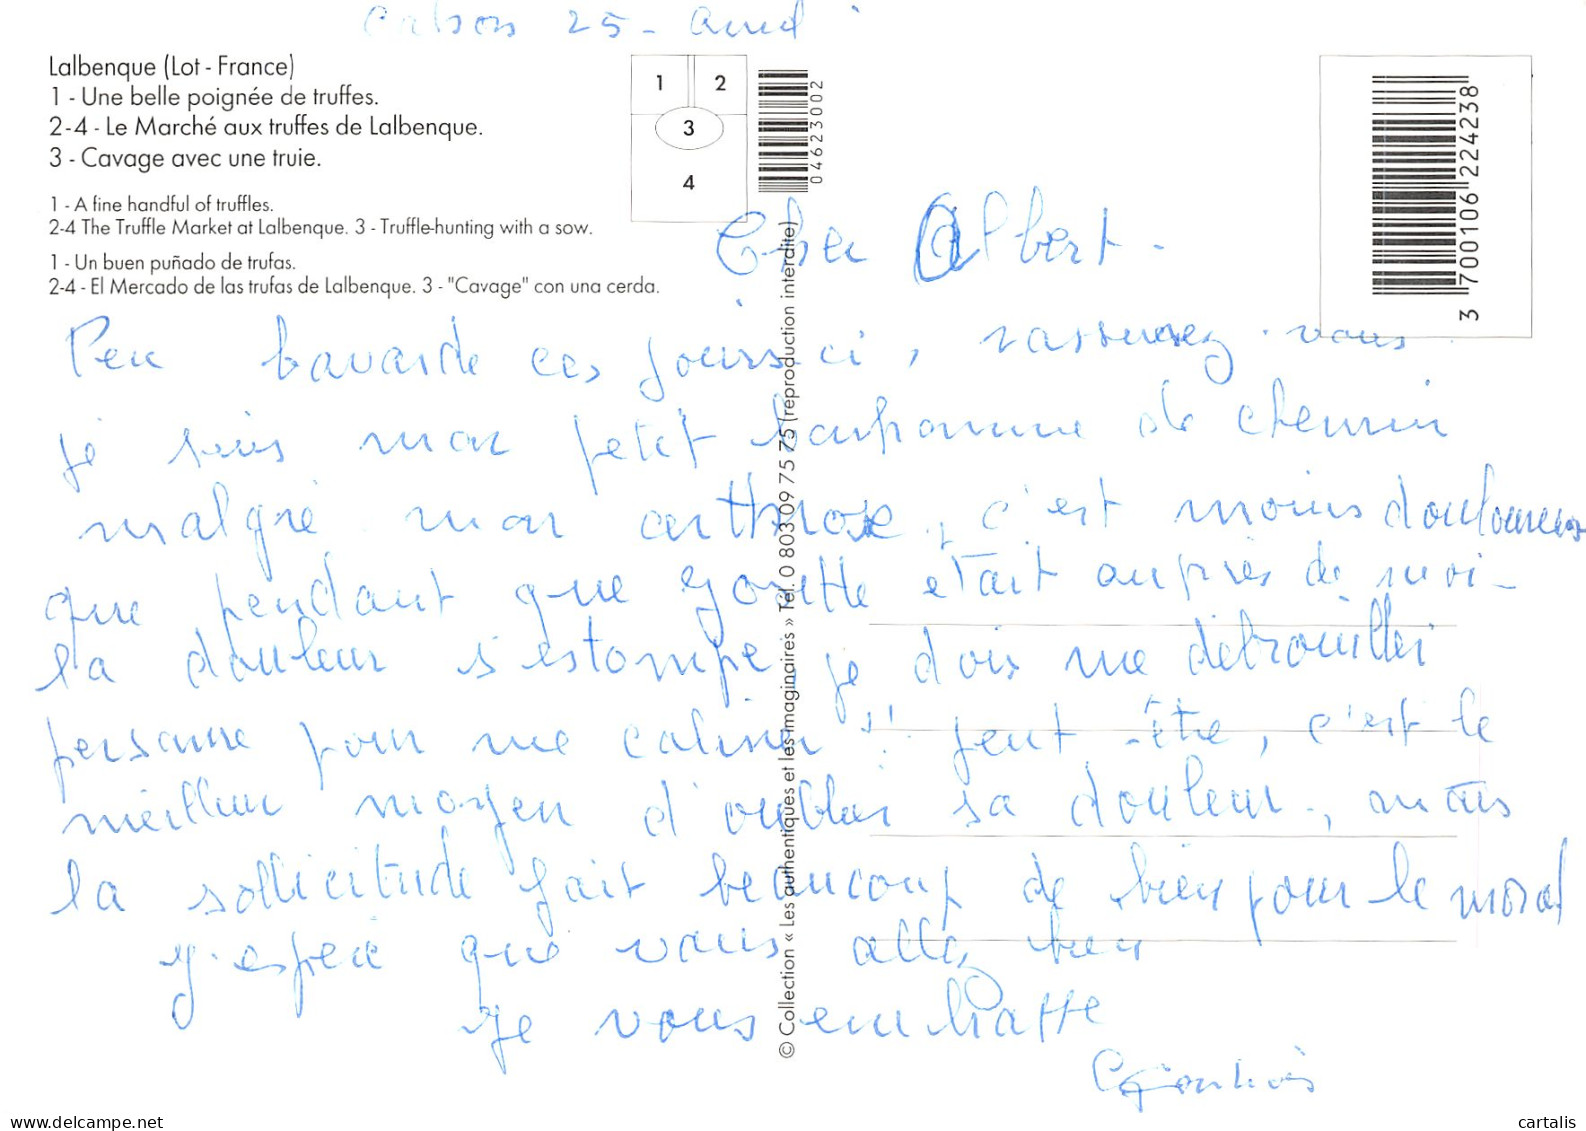 Cahors 25 - Aout
Lalbenque (Lot - France)
1 - Une belle poignée de truffes.
2-4 - Le Marché aux truffes de Lalbenque.
3 - Cavage avec une truie.
1 - A fine handful of truffles.
2-4 The Truffle Market at Lalbenque. 3 - Truffle-hunting with a sow.
1 - Un buen puñado de trufas.
2-4 - El Mercado de las trufas de Lalbenque. 3 - "Cavage" con una cerda.
1 2
3
4
04623002
3 700106 224238
© Collection « Les authentiques et les imaginaires » Tél. 0 803 09 75 75 (reproduction interdite)
Cher Albert -
Peu bavarde ces jours ci, rassurez-vous
je suis mon petit bonhomme de chemin
malgré mon arthrose, c'est moins douloureux
que pendant que était auprès de moi -
la douleur s'estompe, je dois me débrouiller
personne pour me caliner !! peut-être, c'est le
meilleur moyen d'oublier sa douleur.,
la sollicitude fait beaucoup de bien pour le moral
J'espère que vous allez bien
Je vous embrasse